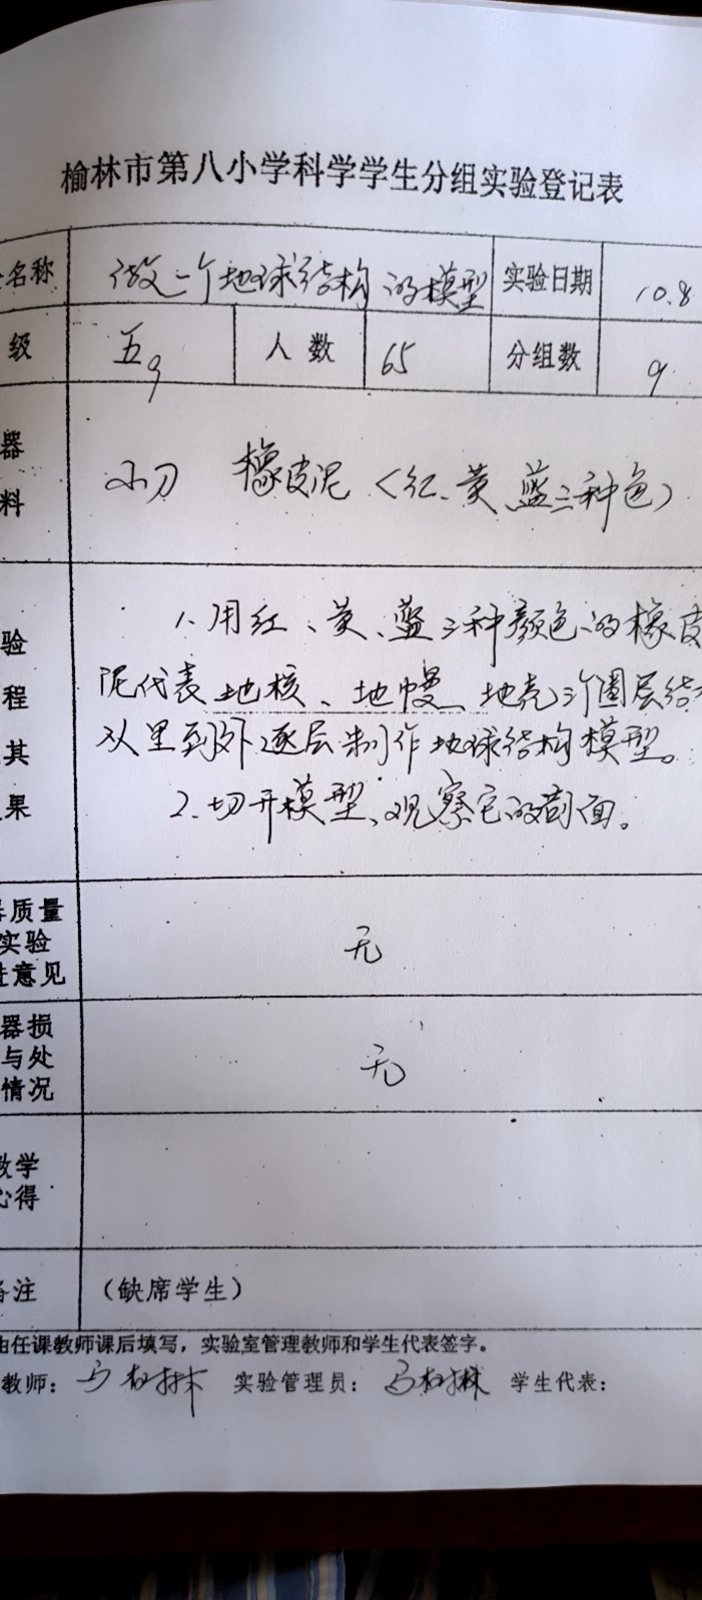 榆林市第八小学科学学生分组实验登记表
名称 做一个地球结构的模型 实验日期 10.8
级 五9 人数 65 分组数 9
器
料
小刀 橡皮泥（红、黄、蓝三种色）
验
程
其
果
1、用红、黄、蓝三种颜色的橡皮
泥代表地核、地幔、地壳三个圈层结
从里到外逐层制作地球结构模型。
2、切开模型、观察它的剖面。
质量
实验
意见
无
器损
与处
情况
无
教学
心得
备注 （缺席学生）
由任课教师课后填写，实验室管理教师和学生代表签字。
教师： 实验管理员： 学生代表：